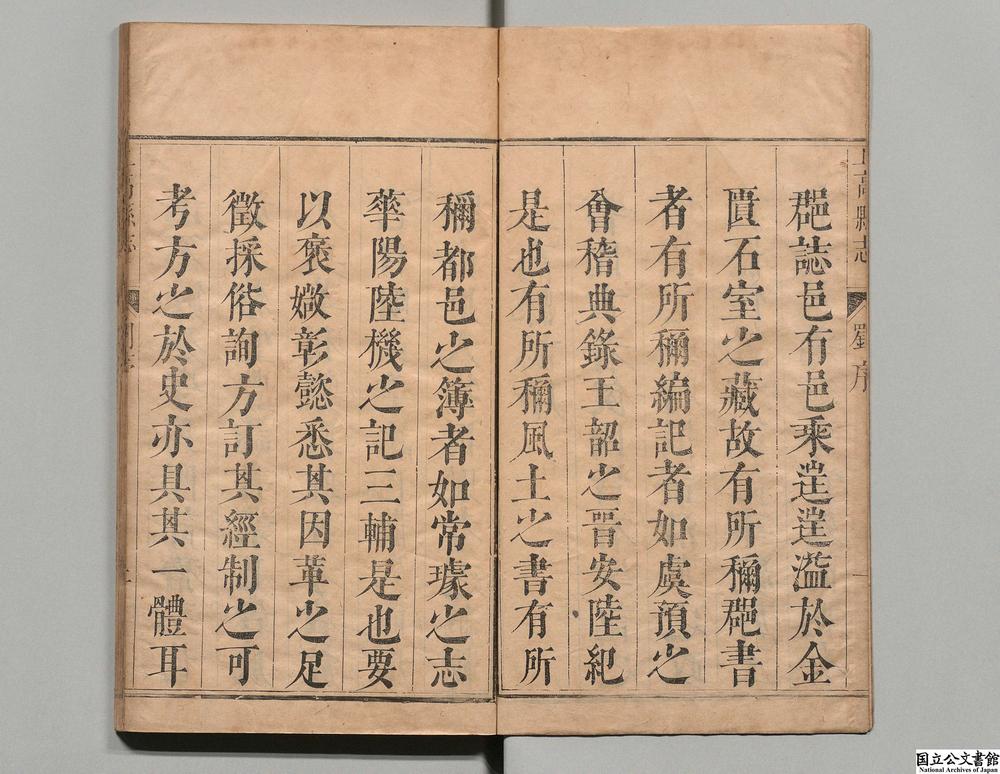 郡誌邑有邑乘遑遑濫於金
匱石室之藏故有所稱郡書
者有所稱編記者如虞預之
會稽典錄王韶之晉安陸紀
是也有所稱風土之書有所
稱都邑之簿者如常璩之志
華陽陸機之記三輔是也要
以褒媺彰懿悉其因革之足
徵採俗詢方訂其經制之可
考方之於史亦具其一體耳
上高縣志
劉序
一
上高縣志
国立公文書館
National Archives of Japan